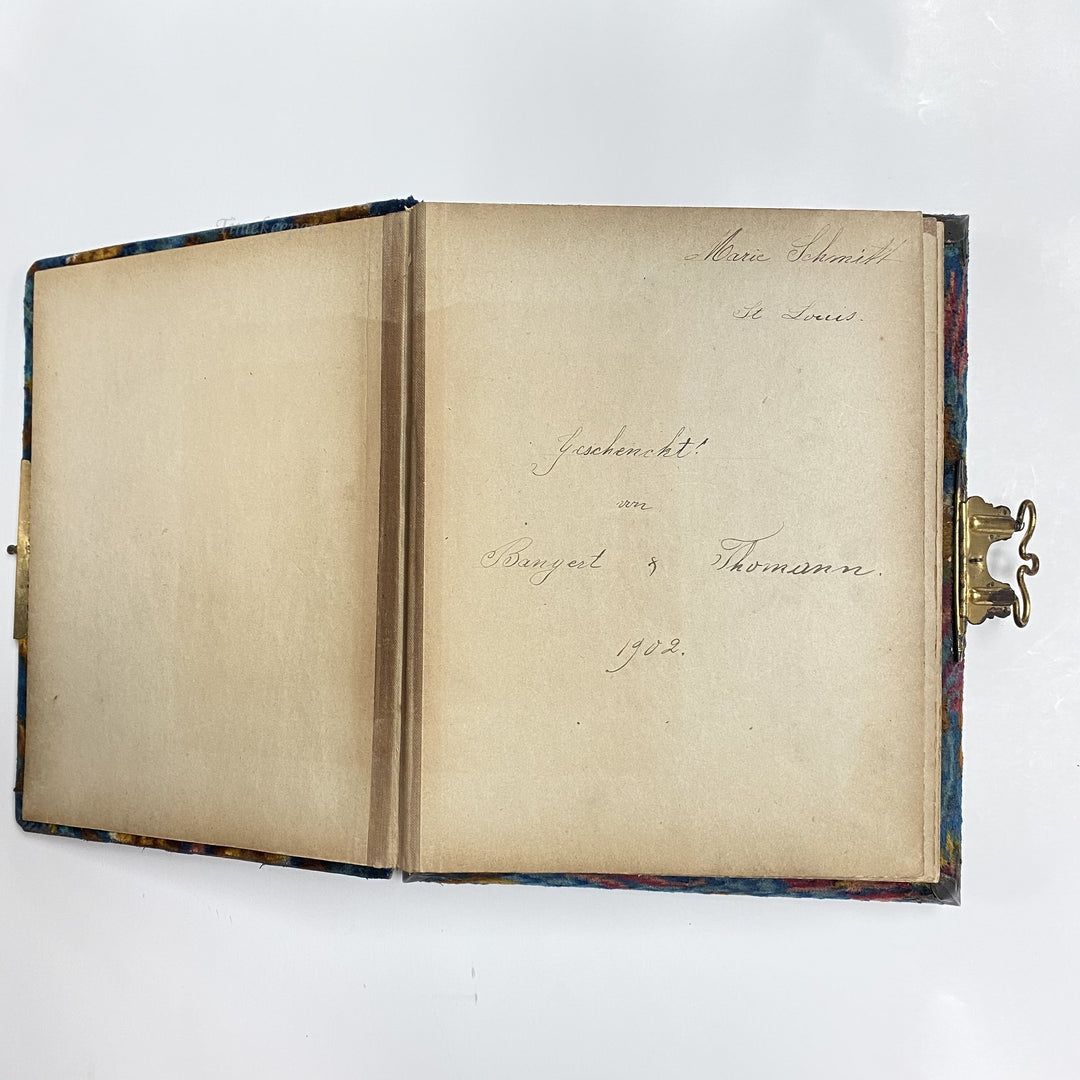 Timekeeper
Marie Schmitt
St Louis.
Geschenckt!
von
Bangert & Thomann.
1902.